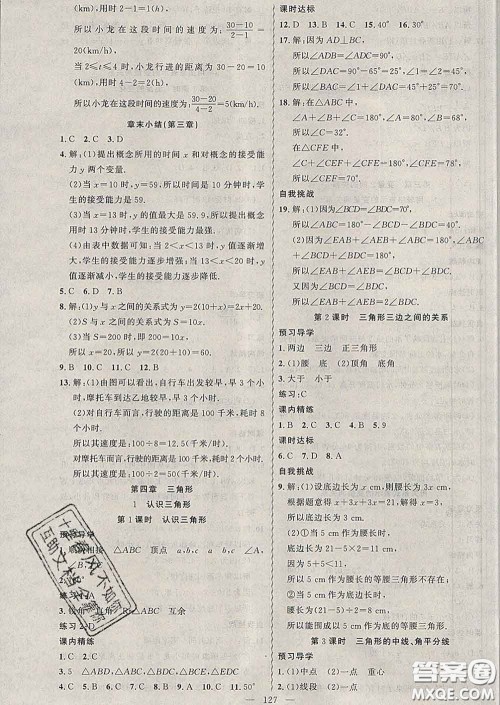 用时 2-1=1(h)
所以小龙在这段时间的速度为:30-20/2-1=10
(km/h)
当 2≤t≤4 时,小龙行进的距离为 30-20=10
(km),用时 4-2=2(h)
所以小龙在这段时间的速度为:30-20/4-2=5(km/h).
章末小结(第三章)
1. C 2. C 3. D
4. 解:(1)提出概念所用的时间 x 和对概念的接受能
力 y 两个变量.
(2)当 x=10 时,y=59,所以时间是 10 分钟时,
学生的接受能力是 59.
(3)当 x=13 时,y 的值最大是 59.9,所以提出概念
用时 13 分钟时,学生的接受能力最强.
(4)由表中数据可知:当 2<x<13 时,y 值逐渐增
大,学生的接受能力逐步增强;当 13<x<20 时,y
值逐渐减小,学生的接受能力逐步降低.
5. C 6. D 7. B
8. 解:(1)y 与 x 之间的关系式为 y=2(10+x)=20+2x.
(2)S 与 x 之间的关系式为 S=10(20+2x)=200+20x.
当 S=200 时,
所以 200+20x=200,所以 x=0.
9. B 10. B 11. D 12. C
13. 解:(1)由图可以看出,自行车出发较早,早 3 个小
时,摩托车到达乙地较早,早 3 个小时.
(2)对自行车而言,行驶的距离是 100 千米,耗时 8
个小时.
所以其速度是:100÷8=12.5(千米/时).
对摩托车而言,行驶的距离是 100 千米,耗时 2 小时,
所以其速度是:100÷2=50(千米/时).
第四章 三角形
1 认识三角形
第 1 课时 认识三角形
△ABC 顶点 a,b,c
互余
课内精练
1. C 2. C
3. 5 △ABD,△BDF,△BCF,△BCD,△ABC
4. D 5. C 6. D 7. B 8. D 9. C 10. C 11. 50°
课时达标
12. D 13. C 14. C 15. 40° 16. 30°
17. 解:因为 AD⊥BC,
所以∠ADB=∠ADC=90°,
所以∠BAD=90°-65°=25°,
所以∠BAC=∠DAC+∠BAD=45°+25°=70°.
18. 解:在△ABC 中,
∠A+∠B+∠C=180°,∠A=62°,∠B=74°,
所以∠C=44°.
在△CFE 中,
∠C+∠CEF+∠CFE=180°,∠CEF=58°,
所以∠CFE=78°.
自我挑战
19. 解:(1)因为∠BCD=∠BCD=70°,
所以∠EAD=∠BCD=70°,
因为∠EAB+∠EAD=180°,
所以∠EAB=110°.
(2)因为∠EAB+∠AEB+∠ABC=180°,∠EAB+
∠EAD=180°,
所以∠EAD=∠AEB+∠ABC,
因为∠EAD=∠BCD+∠BDC,
所以∠AEB+∠ABC=∠BCD+∠BDC.
第 2 课时 三角形三边之间的关系
预习导学
1. 两边 三边 正三角形
2. (1)相等 (2)腰 底边 (3)顶角 底角
3. 大于 小于
练习:C
课内精练
1. C 2. B 3. B 4. B 5. 9
课时达标
6. B 7. C 8. A
自我挑战
9. 解:(1)设底边长为 x cm,则腰长为 2x cm.
2x+2x+x=21,
解得 x=21/5.
所以底边长为 21/5 cm.
(2)①当 5 cm 作为腰长时,
则底边为:21-5-5=11(cm).
因为 5+5<11,
所以 5 cm 为腰的等腰三角形不存在;
②当 5 cm 作为底边长时,
腰长为:(21-5)÷2=8(cm).
因为 5+8>8,
所以能围成以 5 cm 为底的等腰三角形.
第 3 课时 三角形的中线、角平分线
预习导学
1. (1)中点 (2)一点 重心
2. (1)线段 (2)一点
127
答案圈
MXQE.COM